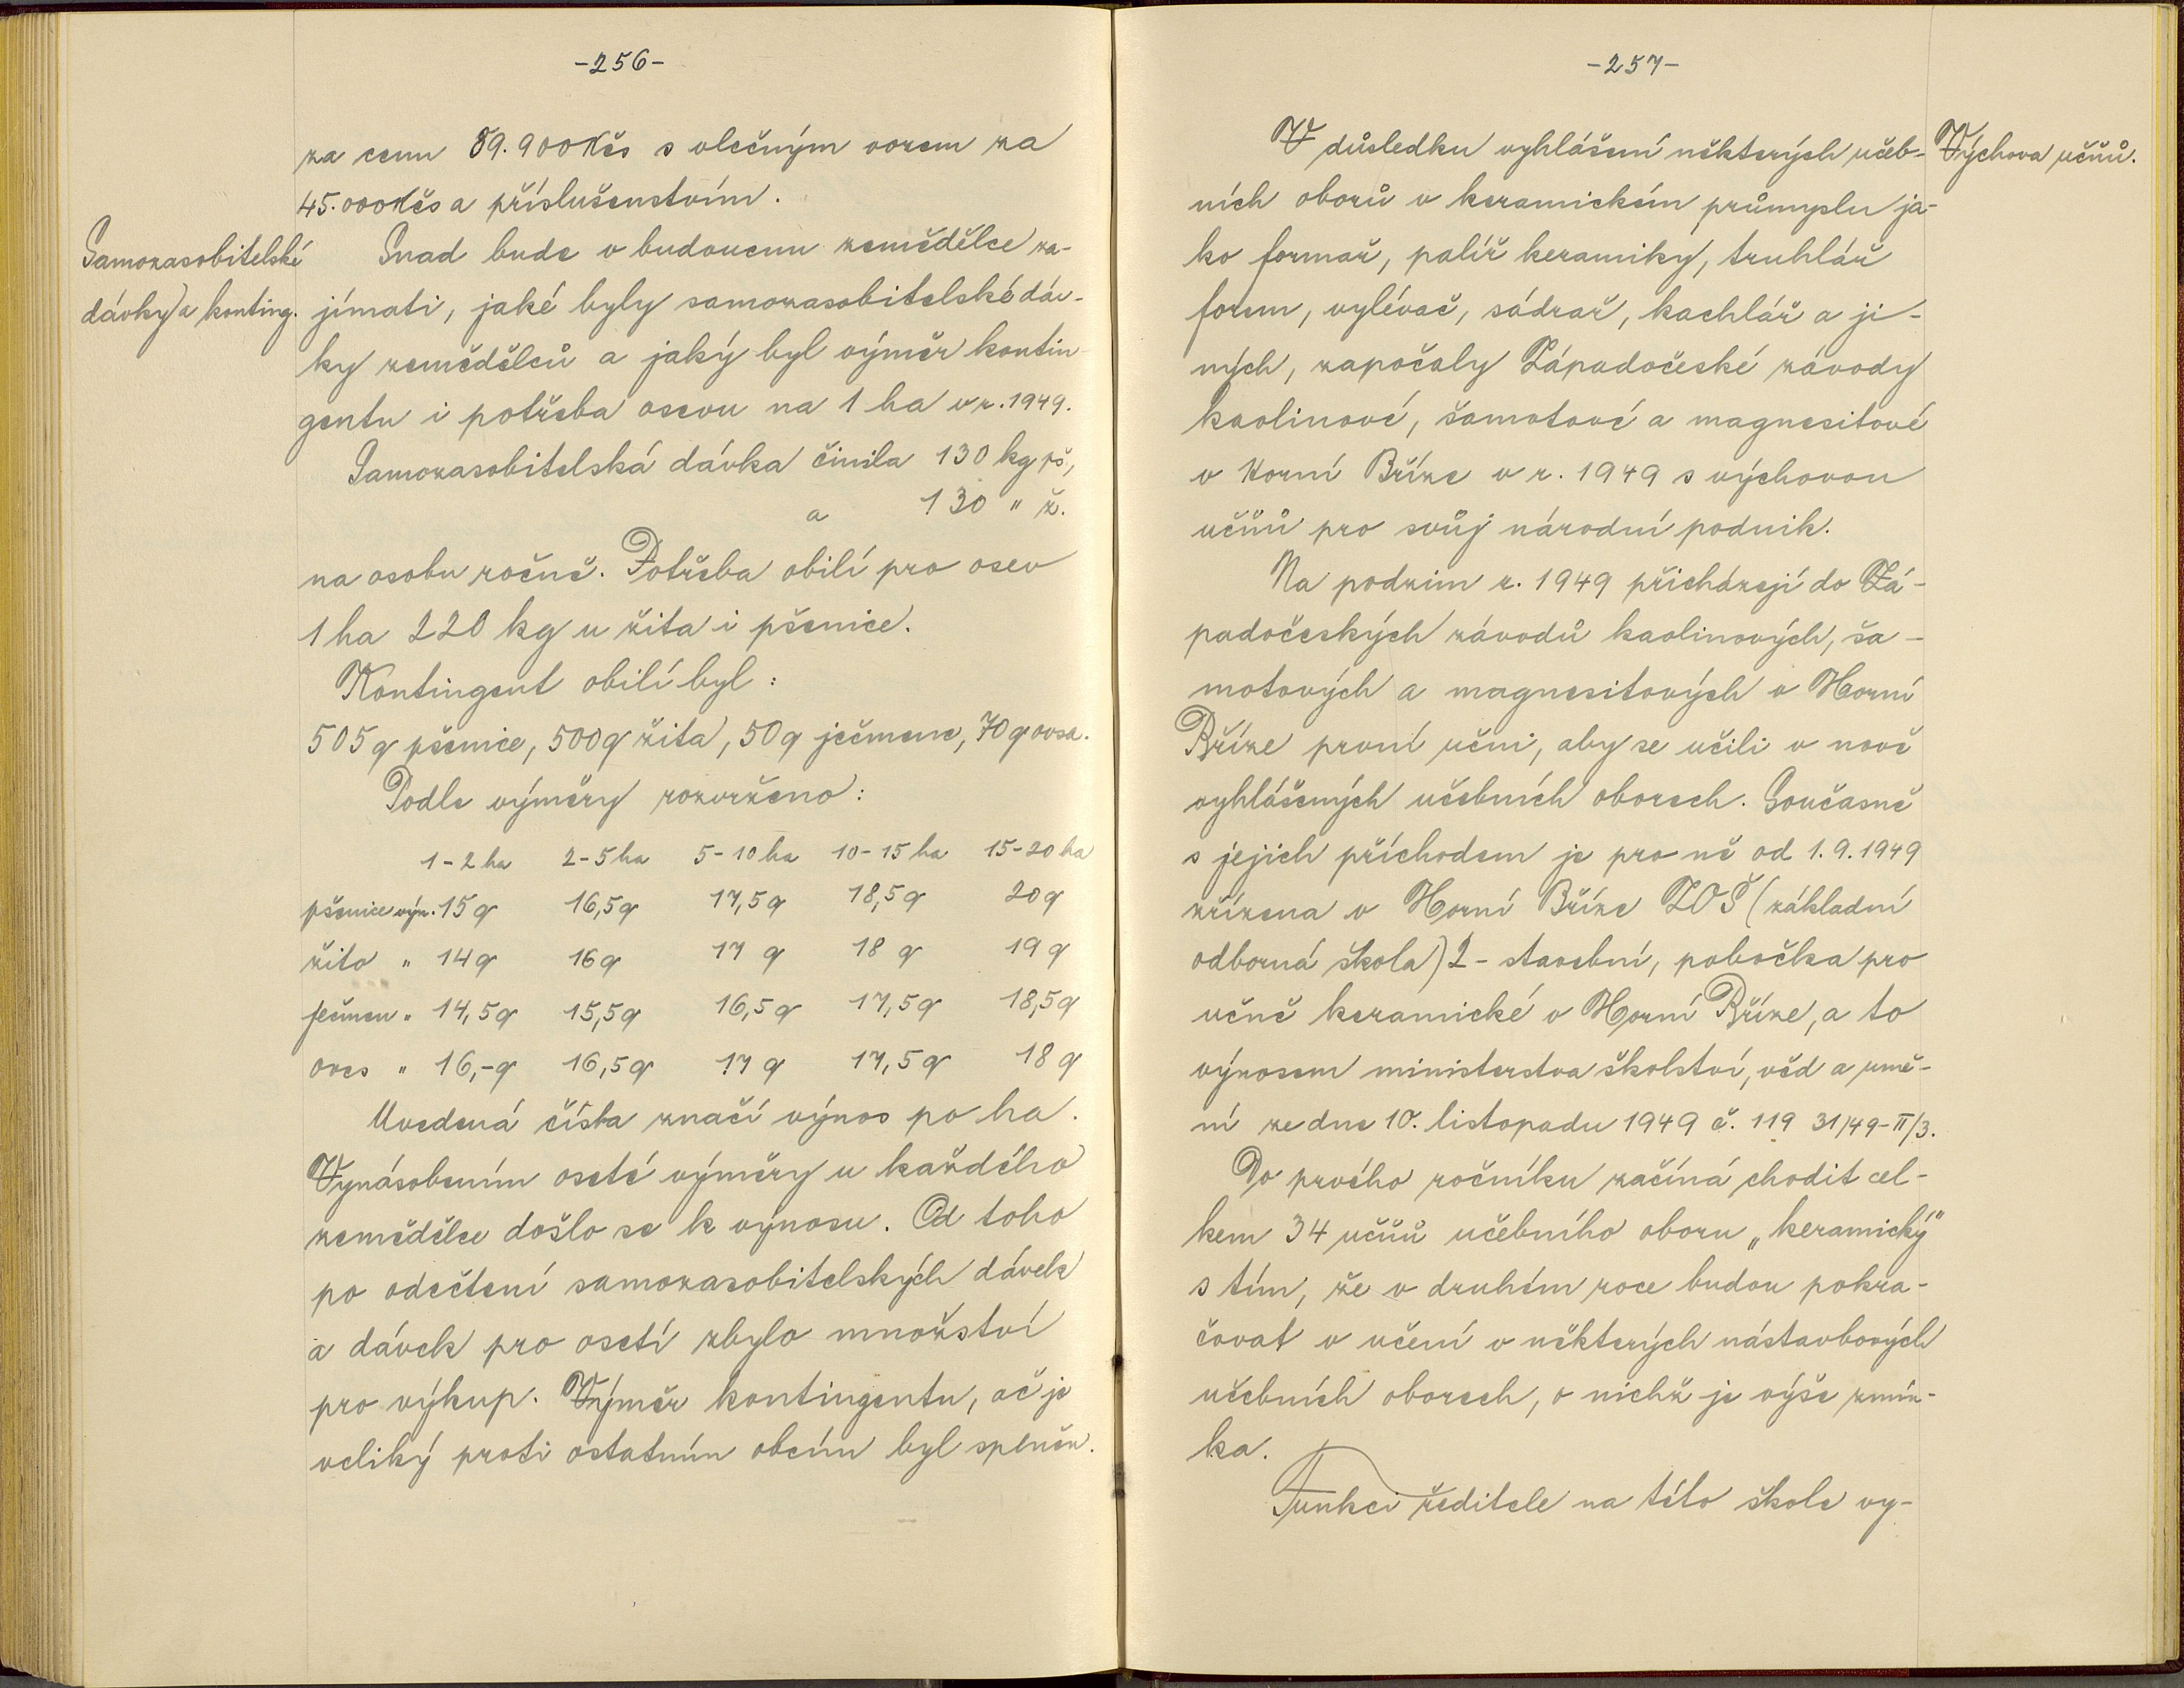 -256-
za cenu 89.900 Kčs s vlečným vozem za
45.000 Kčs a příslušenstvím.
Samozasobitelské
dávky a konting.
Snad bude v budoucnu zemědělce za-
jímati, jaké byly samozasobitelské dáv-
ky zemědělců a jaký byl výměr kontin-
gentu i potřeba osevu na 1 ha v r. 1949.
Samozasobitelská dávka činila 130 kg pš,
a 130 " ž.
na osobu ročně. Potřeba obilí pro osev
1 ha 220 kg u žita i pšenice.
Kontingent obilí byl:
505 q pšenice, 500 q žita, 50 q ječmene, 70 q ovsa.
Podle výměry rozvrženo:
1-2 ha 2-5 ha 5-10 ha 10-15 ha 15-20 ha
pšenice výn. 15 q 16,5 q 17,5 q 18,5 q 20 q
žito " 14 q 16 q 17 q 18 q 19 q
ječmen " 14,5 q 15,5 q 16,5 q 17,5 q 18,5 q
oves " 16,- q 16,5 q 17 q 17,5 q 18 q
Uvedená čísla značí výnos po ha.
Vynásobením oseté výměry u každého
zemědělce došlo se k výnosu. Od toho
po odečtení samozasobitelských dávek
a dávek pro osetí zbylo množství
pro výkup. Výměr kontingentu, ač je
veliký proti ostatním obcím byl splněn.
-257-
Výchova učňů.
V důsledku vyhlášení některých učeb-
ních oborů v keramickém průmyslu ja-
ko formař, palíř keramiky, truhlář
forem, vylévač, sádrař, kachlář a ji-
ných, započaly Západočeské závody
kaolinové, šamotové a magnesitové
v Horní Bříze v r. 1949 s výchovou
učňů pro svůj národní podnik.
Na podzim r. 1949 přicházejí do Zá-
padočeských závodů kaolinových, ša-
motových a magnesitových v Horní
Bříze první učni, aby se učili v nově
vyhlášených učebních oborech. Současně
s jejich příchodem je pro ně od 1.9.1949
zřízena v Horní Bříze ZOŠ (základní
odborná škola) 2 - stavební, pobočka pro
učně keramické v Horní Bříze, a to
výnosem ministerstva školství, věd a umě-
ní ze dne 10. listopadu 1949 č. 119 31/49-II/3.
Do prvého ročníku začíná chodit cel-
kem 34 učňů učebního oboru „keramický"
s tím, že v druhém roce budou pokra-
čovat v učení v některých nástavbových
učebních oborech, o nichž je výše zmín-
ka.
Funkci ředitele na této škole vy-